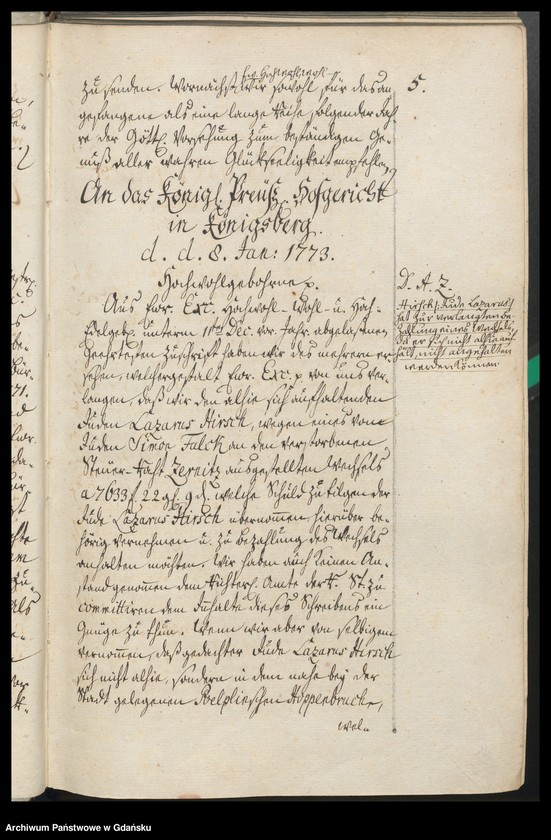 5.
Ew. Hochwohlwohl.
zu senden. Wornächst wir sowohl für das an
gefangene als eine lange Reihe folgender Jah-
re der Göttl. Vorsehung zum beständigen Ge-
nuß aller wahren Glückseeligkeit empfehlen.
An das Königl. Preuß. Hofgericht
in Königsberg.
d. d. 8. Jan: 1773.
Hochwohlgebohrne p.
Aus Ewr. Exc. Hochwohl- Wohl- u. Hoch-
Edelgeb. unterm 11ten Dec. vor. Jahr. abgelaßenen
Geehrtesten Zuschrift haben wir des mehrern er-
sehen, welchergestalt Ewr. Exc. p von uns ver-
langen, daß wir den alhie sich aufhaltenden
Juden Lazarus Hirsch, wegen eines vom
Juden Simoe Falck an den verstorbenen
Steuer-Raht Zernitz ausgestellten Wechsels
a 7633 f. 22 gl. 9 d. welche Schuld zu tilgen der
Jude Lazarus Hirsch übernommen, hierüber be-
hörig vernehmen u. zu Bezahlung des Wechsels
anhalten möchten. Wir haben auch keinen An-
stand genommen dem Richterl. Amte der R. St. zu
committiren dem Inhalte dieses Schreibens ein
Gnüge zu thun. Wenn wir aber von selbigem
vernommen, daß gedachter Jude Lazarus Hirsch
sich nicht alhie, sondern in dem nahe bey der
Stadt gelegenen Poelplinschen Hoppenbruche,
wel-
D. A. Z.
Hirsch /: Jude Lazarus :/
hat zur verlangten Be-
zahlung eines Wechsels,
da er sich nicht alhie auf-
hält, nicht angehalten
werden können.
Archiwum Państwowe w Gdańsku